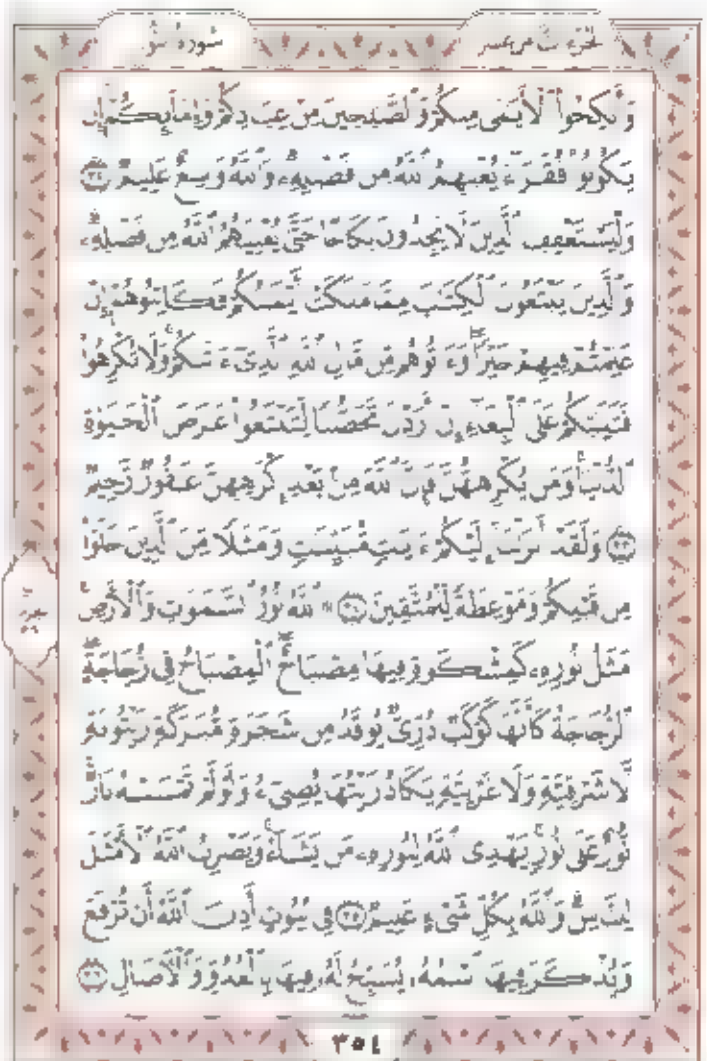 الجزء الثامن عشر سورة النور
وَأَنكِحُوا۟ ٱلْأَيَـٰمَىٰ مِنكُمْ وَٱلصَّـٰلِحِينَ مِنْ عِبَادِكُمْ وَإِمَآئِكُمْ ۚ إِن
يَكُونُوا۟ فُقَرَآءَ يُغْنِهِمُ ٱللَّهُ مِن فَضْلِهِۦ ۗ وَٱللَّهُ وَٰسِعٌ عَلِيمٌ ٣٢
وَلْيَسْتَعْفِفِ ٱلَّذِينَ لَا يَجِدُونَ نِكَاحًا حَتَّىٰ يُغْنِيَهُمُ ٱللَّهُ مِن فَضْلِهِۦ ۗ
وَٱلَّذِينَ يَبْتَغُونَ ٱلْكِتَـٰبَ مِمَّا مَلَكَتْ أَيْمَـٰنُكُمْ فَكَاتِبُوهُمْ إِنْ
عَلِمْتُمْ فِيهِمْ خَيْرًا ۖ وَءَاتُوهُم مِّن مَّالِ ٱللَّهِ ٱلَّذِىٓ ءَاتَىٰكُمْ ۚ وَلَا تُكْرِهُوا۟
فَتَيَـٰتِكُمْ عَلَى ٱلْبِغَآءِ إِنْ أَرَدْنَ تَحَصُّنًا لِّتَبْتَغُوا۟ عَرَضَ ٱلْحَيَوٰةِ
ٱلدُّنْيَا ۚ وَمَن يُكْرِههُّنَّ فَإِنَّ ٱللَّهَ مِنۢ بَعْدِ إِكْرَٰهِهِنَّ غَفُورٌ رَّحِيمٌ
٣٣ وَلَقَدْ أَنزَلْنَآ إِلَيْكُمْ ءَايَـٰتٍ مُّبَيِّنَـٰتٍ وَمَثَلًا مِّنَ ٱلَّذِينَ خَلَوْا۟
مِن قَبْلِكُمْ وَمَوْعِظَةً لِّلْمُتَّقِينَ ٣٤ ۞ ٱللَّهُ نُورُ ٱلسَّمَـٰوَٰتِ وَٱلْأَرْضِ ۚ
مَثَلُ نُورِهِۦ كَمِشْكَوٰةٍ فِيهَا مِصْبَاحٌ ۖ ٱلْمِصْبَاحُ فِى زُجَاجَةٍ ۖ
ٱلزُّجَاجَةُ كَأَنَّهَا كَوْكَبٌ دُرِّىٌّ يُوقَدُ مِن شَجَرَةٍ مُّبَـٰرَكَةٍ زَيْتُونَةٍ
لَّا شَرْقِيَّةٍ وَلَا غَرْبِيَّةٍ يَكَادُ زَيْتُهَا يُضِىٓءُ وَلَوْ لَمْ تَمْسَسْهُ نَارٌ ۚ
نُّورٌ عَلَىٰ نُورٍ ۗ يَهْدِى ٱللَّهُ لِنُورِهِۦ مَن يَشَآءُ ۚ وَيَضْرِبُ ٱللَّهُ ٱلْأَمْثَـٰلَ
لِلنَّاسِ ۗ وَٱللَّهُ بِكُلِّ شَىْءٍ عَلِيمٌ ٣٥ فِى بُيُوتٍ أَذِنَ ٱللَّهُ أَن تُرْفَعَ
وَيُذْكَرَ فِيهَا ٱسْمُهُۥ يُسَبِّحُ لَهُۥ فِيهَا بِٱلْغُدُوِّ وَٱلْـَٔاصَالِ ٣٦
٣٥٤